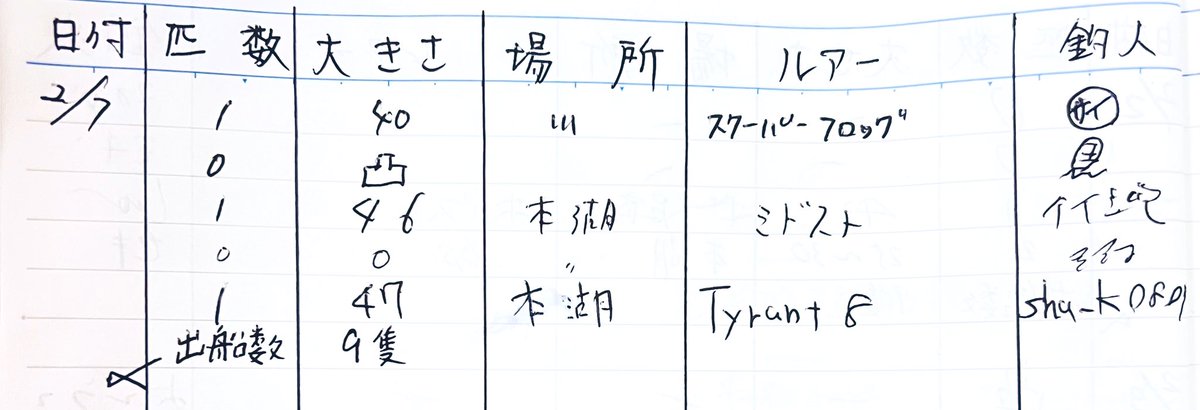 日付 匹数 大きさ 場所 ルアー 釣人
2/7 1 40 川 スクーパーフロッグ サイ
0 凸
1 46 本湖 ミドスト
0 0
1 47 本湖 Tyrant 8 shu_k0801
出船数 9隻